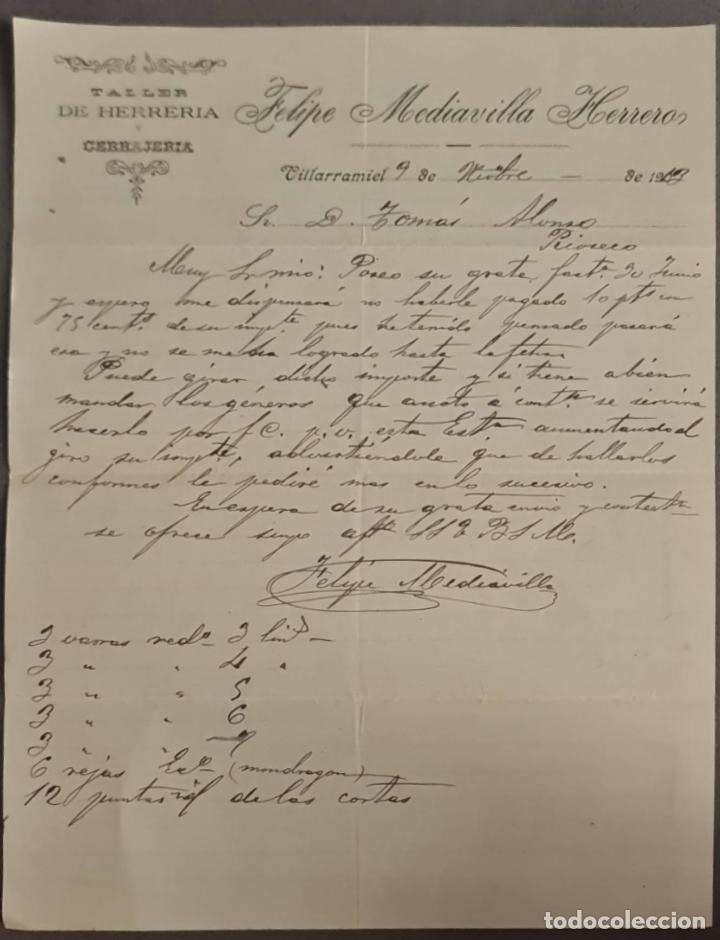 TALLER
DE HERRERIA
Y
CERRAJERIA
Felipe Mediavilla Herrero
Villarramiel 9 de de 1913
Sr. D. Tomás Alonso
Rioseco
Muy Sr. mio: Poseo su grata fact.ª 30 Junio
y espero me dispensará no haberle pagado 10 pts con
75 cent.s de su impte pues he tenido pensado pasar á
esa y no se me ha logrado hasta la fecha
Puede girar dicho importe y si tiene a bien
mandar los géneros que anoto a cont.n se servirá
hacerlo por f C. p. v. esta Est.n aumentando al
giro su impte, advirtiéndole que de hallarlos
conformes le pediré mas en lo sucesivo.
En espera de su grato envio y contest.n
se ofrece suyo aftº S S Q B S M.
Felipe Mediavilla
3 varras red.s 3 lin.s
3 " " 4 "
3 " " 5
3 " " 6
3 " "
6 rejas (mondragon)
12 puntas de las cortas
todocoleccion